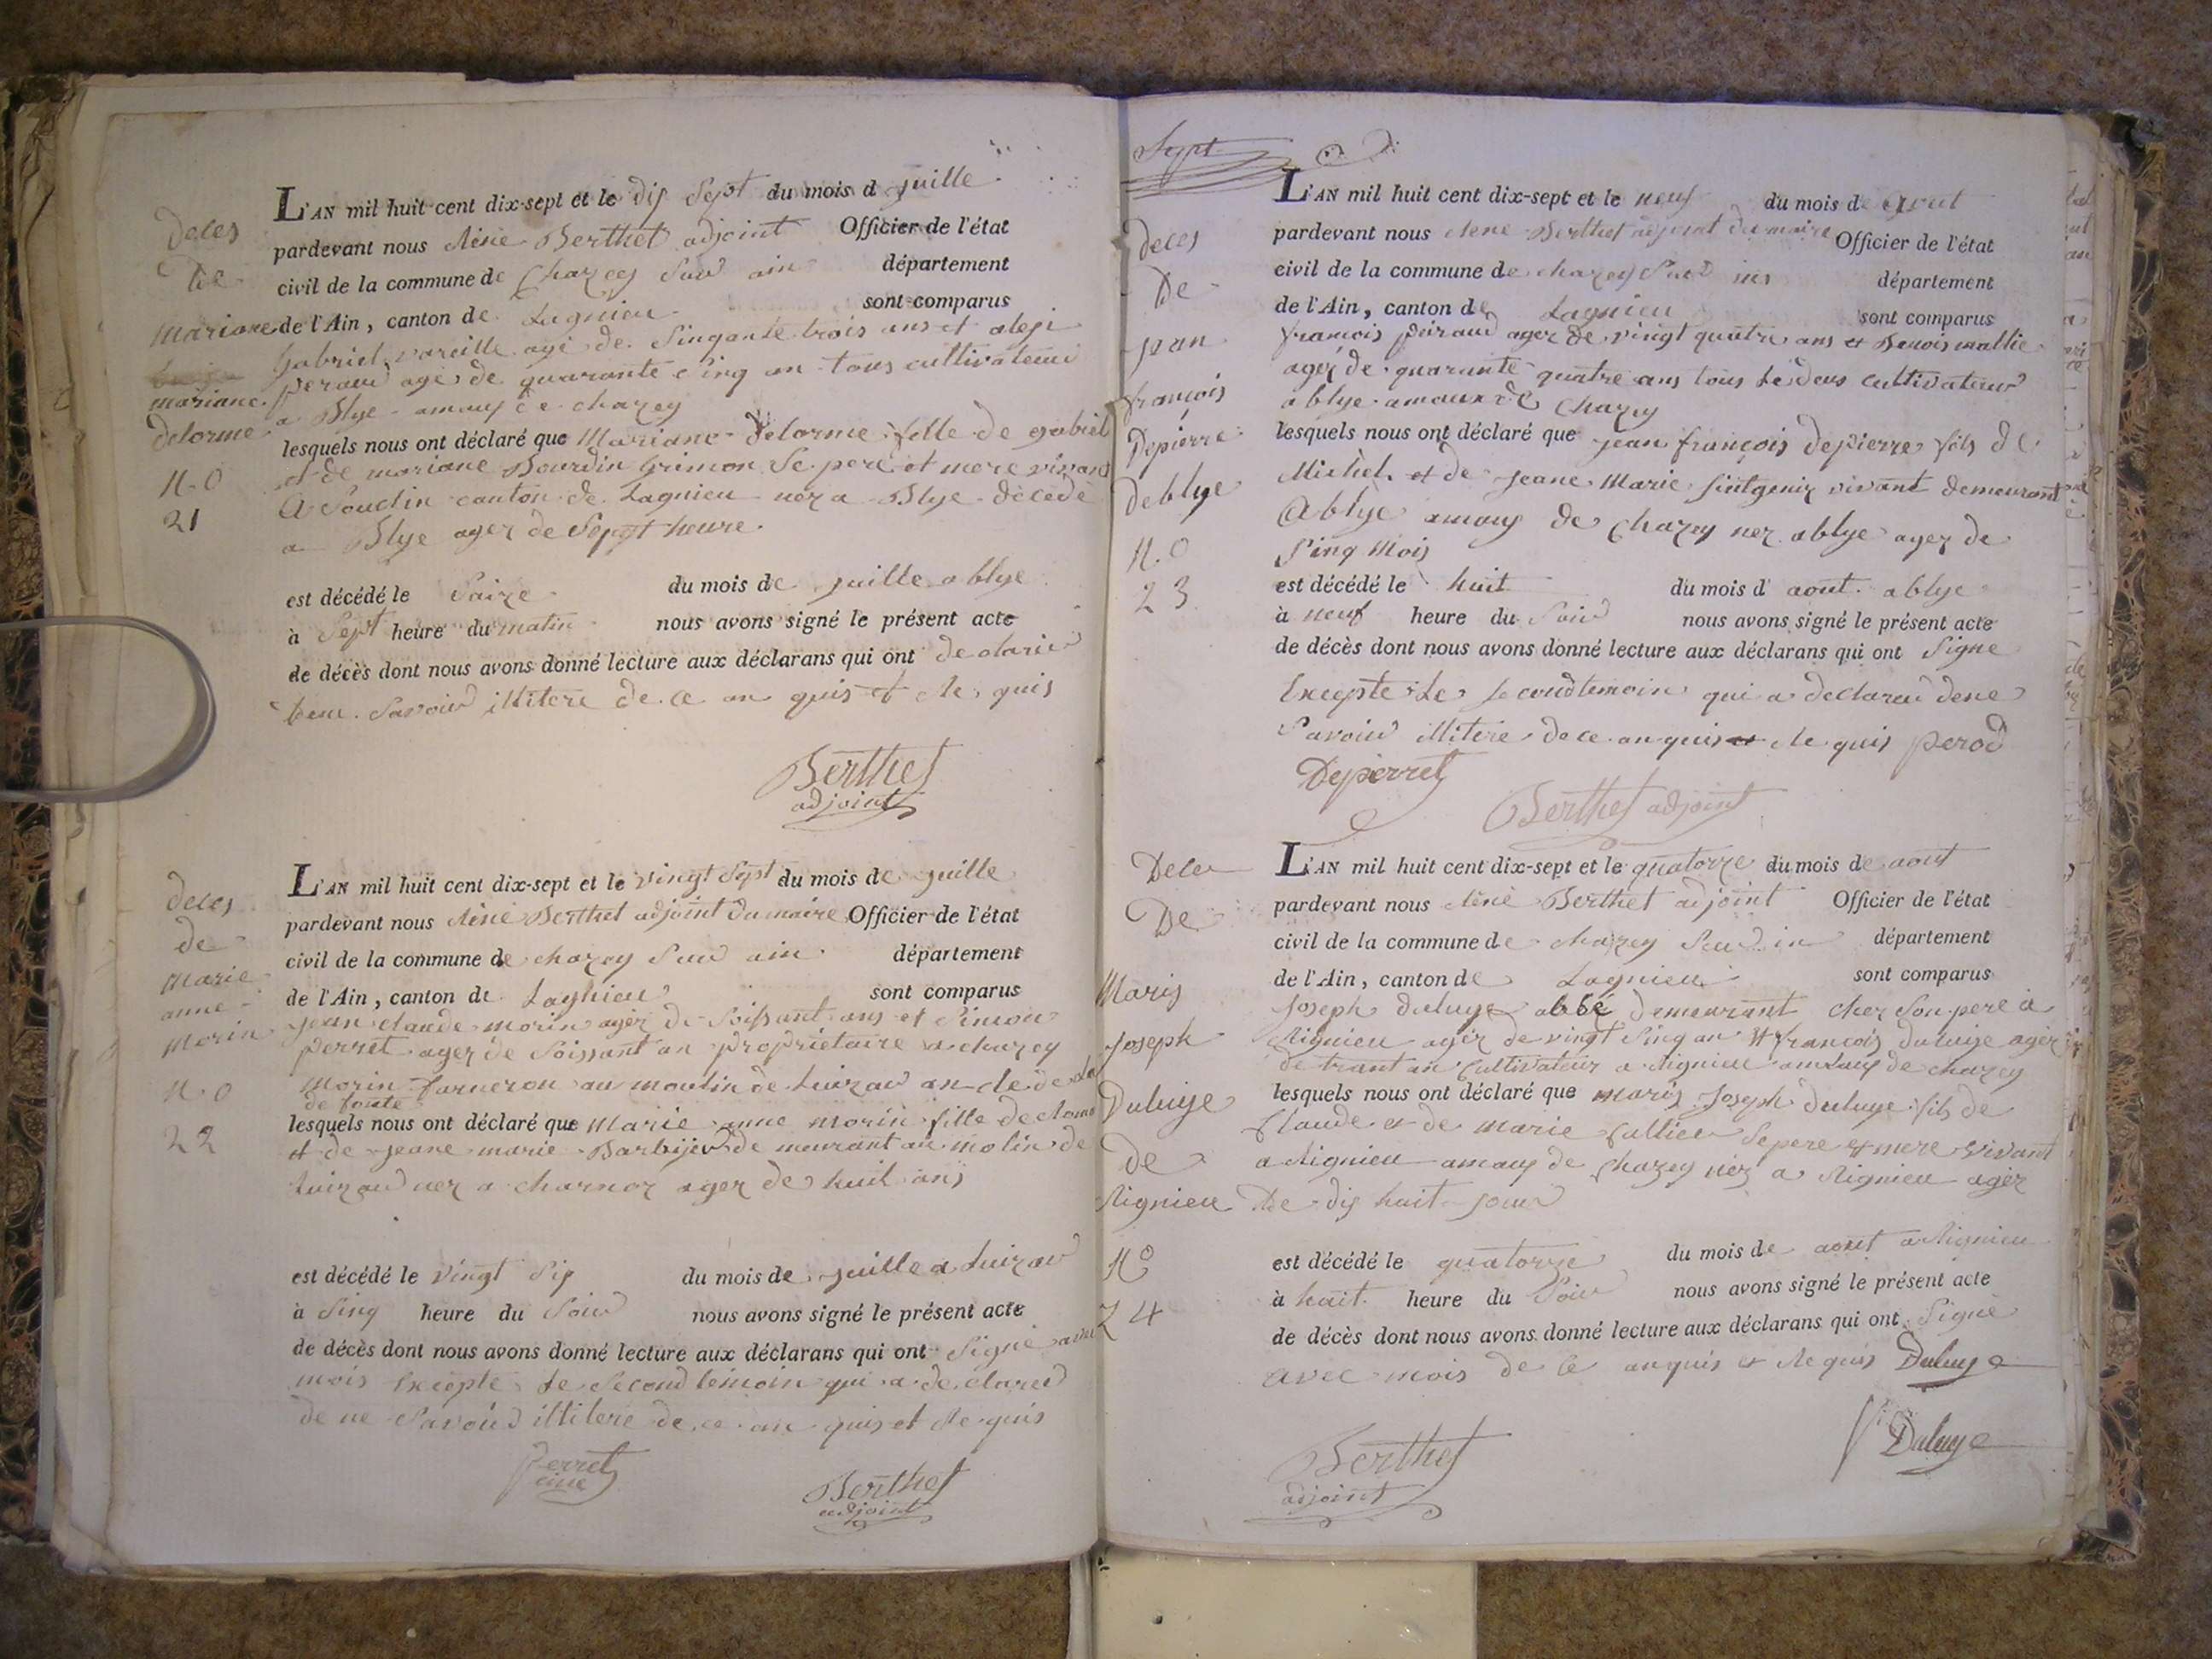 deces
de
Mariane
mariane
delorme
N.o
21
L'AN mil huit cent dix-sept et le dix Sept du mois d juille
pardevant nous Réné Berthet adjoint Officier de l'état
civil de la commune de Chazey Sur ain département
de l'Ain, canton de Lagnieu sont comparus
Gabriel vareille agé de Singante trois ans et alexi
peraud agé de quarante Sing an tous cultivateur
a Blye amaux de chazey
lesquels nous ont déclaré que Mariane Delorme fille de gabriel
et de mariane Bourdin Grimon Se pere et mere vivand
A Soudin canton de Lagnieu nez a Blye décédé
a Blye agez de Sept heure
est décédé le Saize du mois de juille a blye
à Sept heure du matin nous avons signé le présent acte
de décès dont nous avons donné lecture aux déclarans qui ont declarer
Savoir illitere de ce an quis et Re quis
Berthet
adjoint
deces
de
Marie
anne
Morin
N.o
22
L'AN mil huit cent dix-sept et le vingt Sept du mois de juille
pardevant nous Réné Berthet adjoint du maire Officier de l'état
civil de la commune de chazey Sur ain département
de l'Ain, canton de Lagnieu sont comparus
jean claude morin agèz de Soissant ans et Simon
perret agez de Soissant an propriétaire a chazey
Morin farneron au moulin de Luizar
lesquels nous ont déclaré que Marie anne morin fille de
et de jeane marie Barbijer de meurant au molin de
Luizard nez a charnoz agez de huit ans
est décédé le vingt Six du mois de juille a Luizar
à Sing heure du Soir nous avons signé le présent acte
de décès dont nous avons donné lecture aux déclarans qui ont Signé avec
mois Excepté Le Second temoin qui a declared
de ne Savoir illitere de ce an quis et Re quis
Perret
Berthet
adjoint
Sept
deces
De
jean
françois
Depierre
deblye
N.o
23
L'AN mil huit cent dix-sept et le neuf du mois d aout
pardevant nous Réné Berthet adjoint du maire Officier de l'état
civil de la commune de chazey Sur ins département
de l'Ain, canton de Lagnieu sont comparus
françois peiraud agez de vingt quatre ans et Benois mallie
agéz de quarante quatre ans tous Le deus cultivateur
a blye amaux de Chazey
lesquels nous ont déclaré que jean françois depierre fils de
Michel et de jeane Marie Sintgeniz vivant demeurant
Ablye amaux de Chazey nez ablye agez de
Sing Mois
est décédé le huit du mois d aout ablye
à neuf heure du Soir nous avons signé le présent acte
de décès dont nous avons donné lecture aux déclarans qui ont Signe
Excepte Le Secondtemoin qui a declared dene
Savoir illitere de ce an quis et Re quis perod
Depierret
Berthet adjoint
Deces
De
Maris
Joseph
Duluye
de
Rignieu
No
24
L'AN mil huit cent dix-sept et le quatorze du mois de aout
pardevant nous Réné Berthet adjoint Officier de l'état
civil de la commune de chazey Sur in département
de l'Ain, canton de Lagnieu sont comparus
Joseph duluye abbé demeurant chez Son pere à
Rignieu agéz de vingt Sing an et françois duluye agèz
de trant an Cultivateur a Rignieu amaux de chazey
lesquels nous ont déclaré que maris Joseph duluye fils de
Claude et de marie Cullier Se pere et mere vivant
a Rignieu amaux de Chazey néz a Rignieu agéz
De dix huit jour
est décédé le quatorze du mois de aout a Rignieu
à huit heure du Soir nous avons signé le présent acte
de décès dont nous avons donné lecture aux déclarans qui ont Signé
avec mois de ce anquis et Re quis Duluye
Duluye
Berthet
adjoint